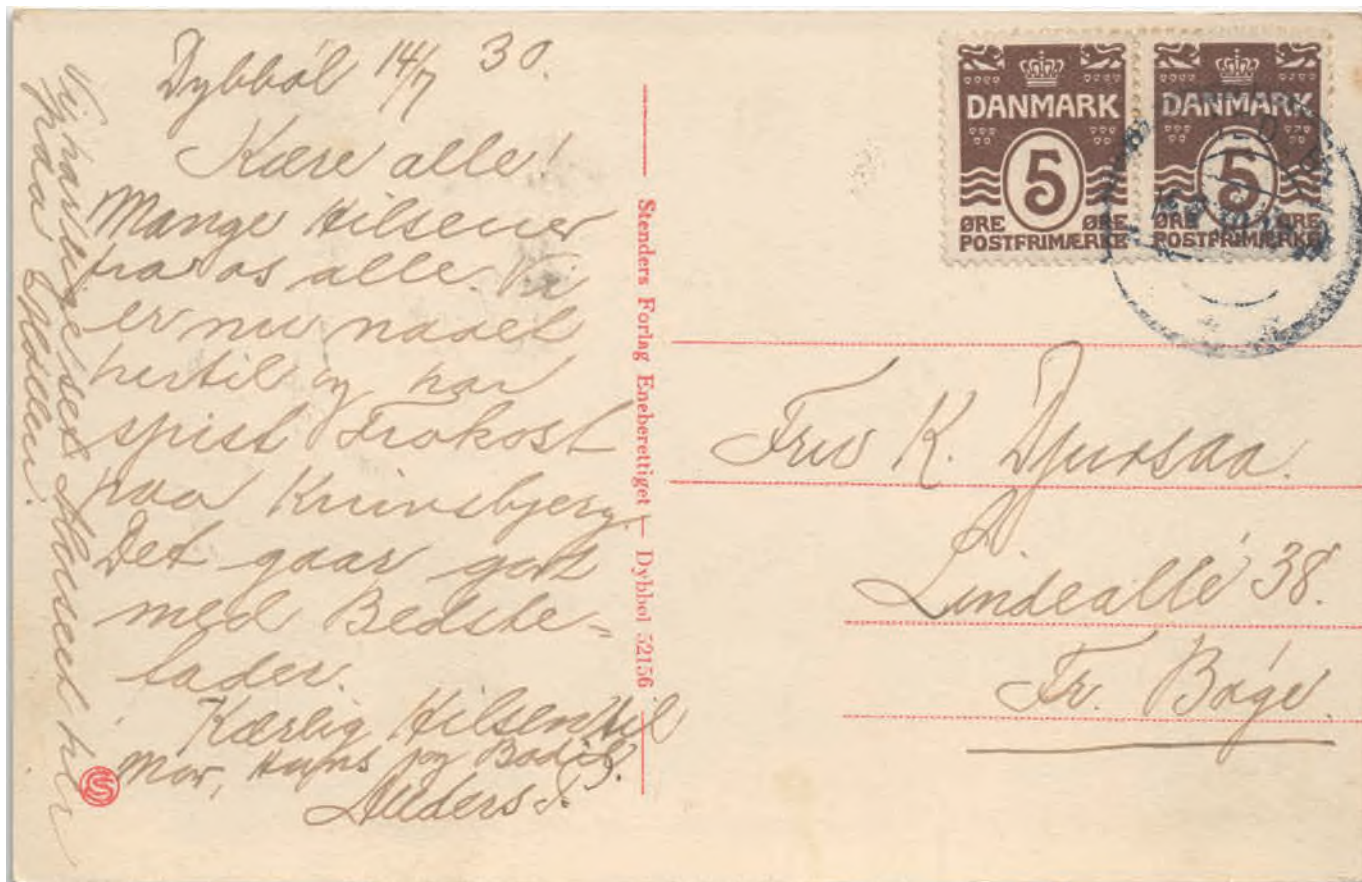 Dybbøl 14/7 30.
Kære alle!
Mange Hilsener
fra os alle. Vi
er nu naaet
hertil og har
spist Frokost
paa
Det gaar godt
med Bedste=
fader.
Kærlig Hilsen til
Mor, Hans og Bodil.
Anders
Vi har lige set Museet her
fra Møllen.
Stenders Forlag Eneberettiget — Dybbøl 52156
DANMARK
5
ØRE ØRE
POSTFRIMÆRKE
DANMARK
5
ØRE ØRE
POSTFRIMÆRKE
Fru K. Djursaa.
Lindeallé 38.
Fr. Bøge.